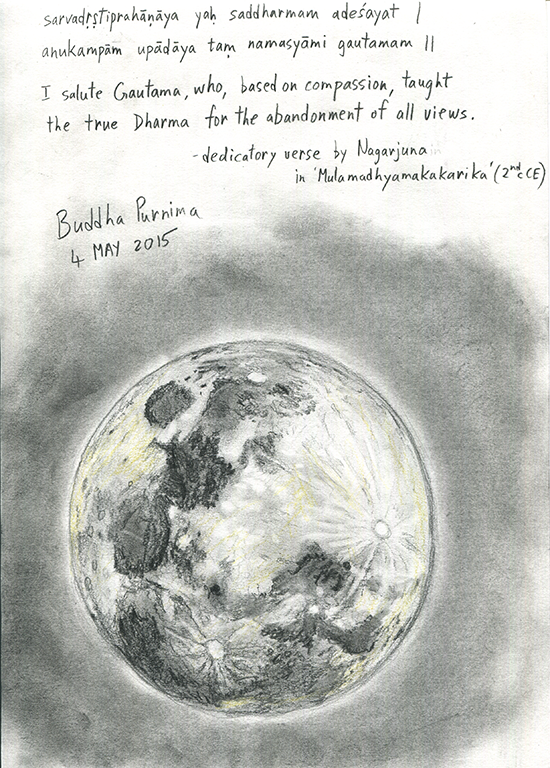 sarvadṛṣṭiprahāṇāya yaḥ saddharmam adeśayat |
anukampām upādāya taṃ namasyāmi gautamam ||
I salute Gautama, who, based on compassion, taught
the true Dharma for the abandonment of all views.
- dedicatory verse by Nagarjuna
in 'Mulamadhyamakakarika' (2nd c CE)
Buddha Purnima
4 MAY 2015